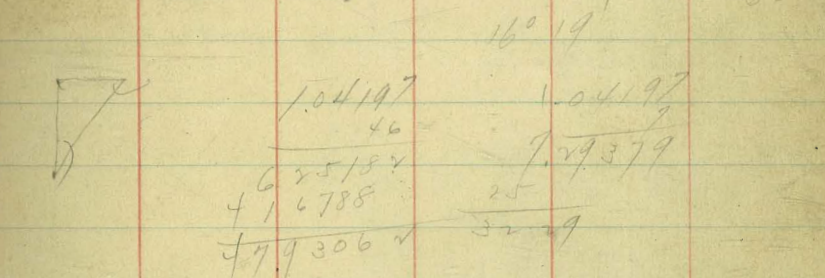 16° 19'
1.04197
46
625182
416788
479306 2
1.04197
7
7.29379
25
32 29